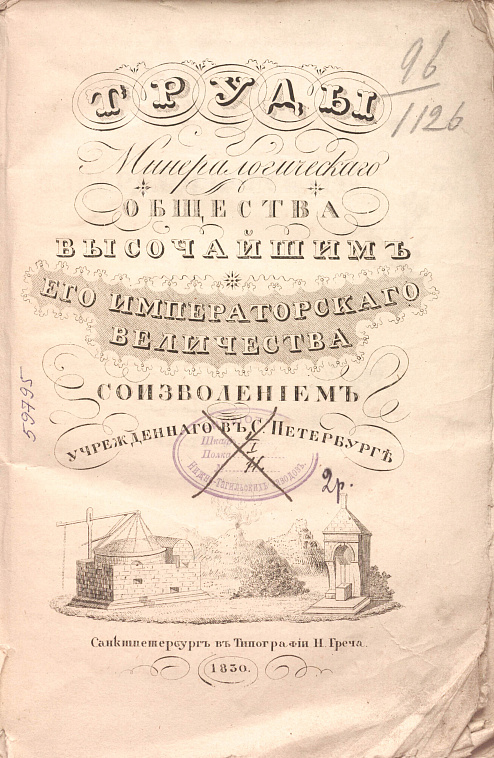 96
1126
ТРУДЫ
Минералогическаго
ОБЩЕСТВА
ВЫСОЧАЙШИМЪ
ЕГО ИМПЕРАТОРСКАГО
ВЕЛИЧЕСТВА
СОИЗВОЛЕНІЕМЪ
УЧРЕЖДЕННАГО ВЪ С. ПЕТЕРБУРГѢ
59795
Шкафъ
Полка
НИЖНЕ-ТАГИЛЬСКИХЪ ЗАВОДОВЪ.
2р.
Санктпетербургъ въ Типографіи Н. Греча.
1830.